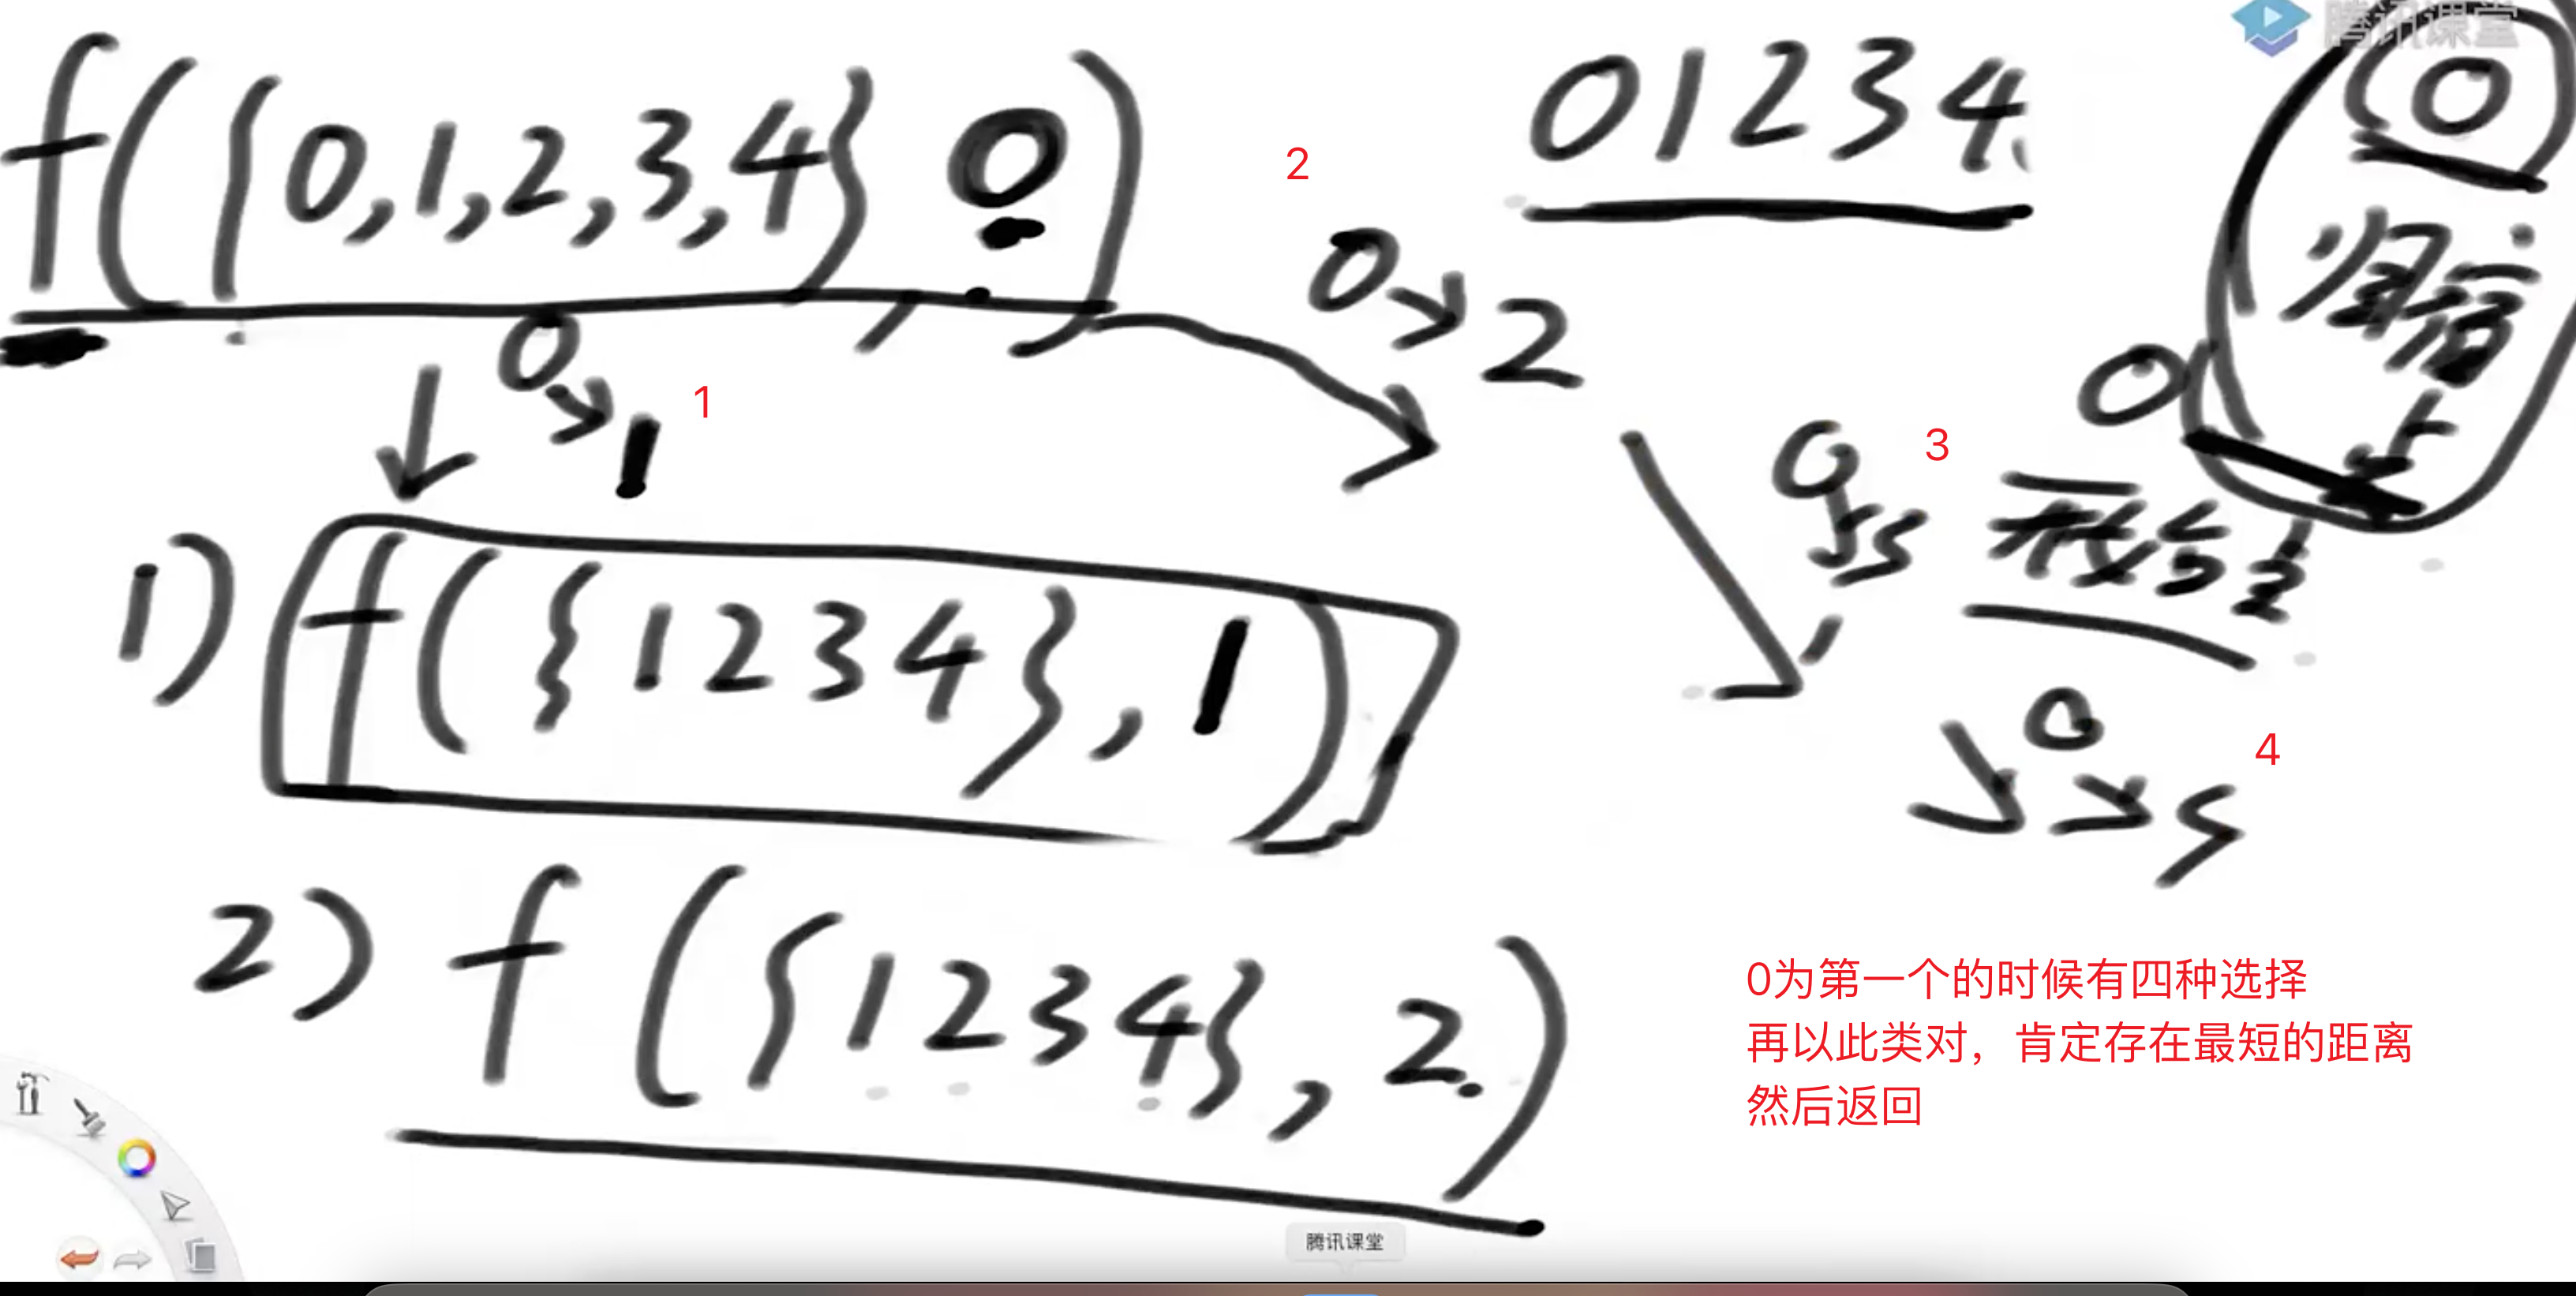 腾讯课堂
f({0,1,2,3,4}, 0)
01234
0
2
0→2
0→1
1
0
0→3
3
1) f({1234}, 1)
0→4
4
2) f({1234}, 2)
0为第一个的时候有四种选择
再以此类对，肯定存在最短的距离
然后返回
腾讯课堂